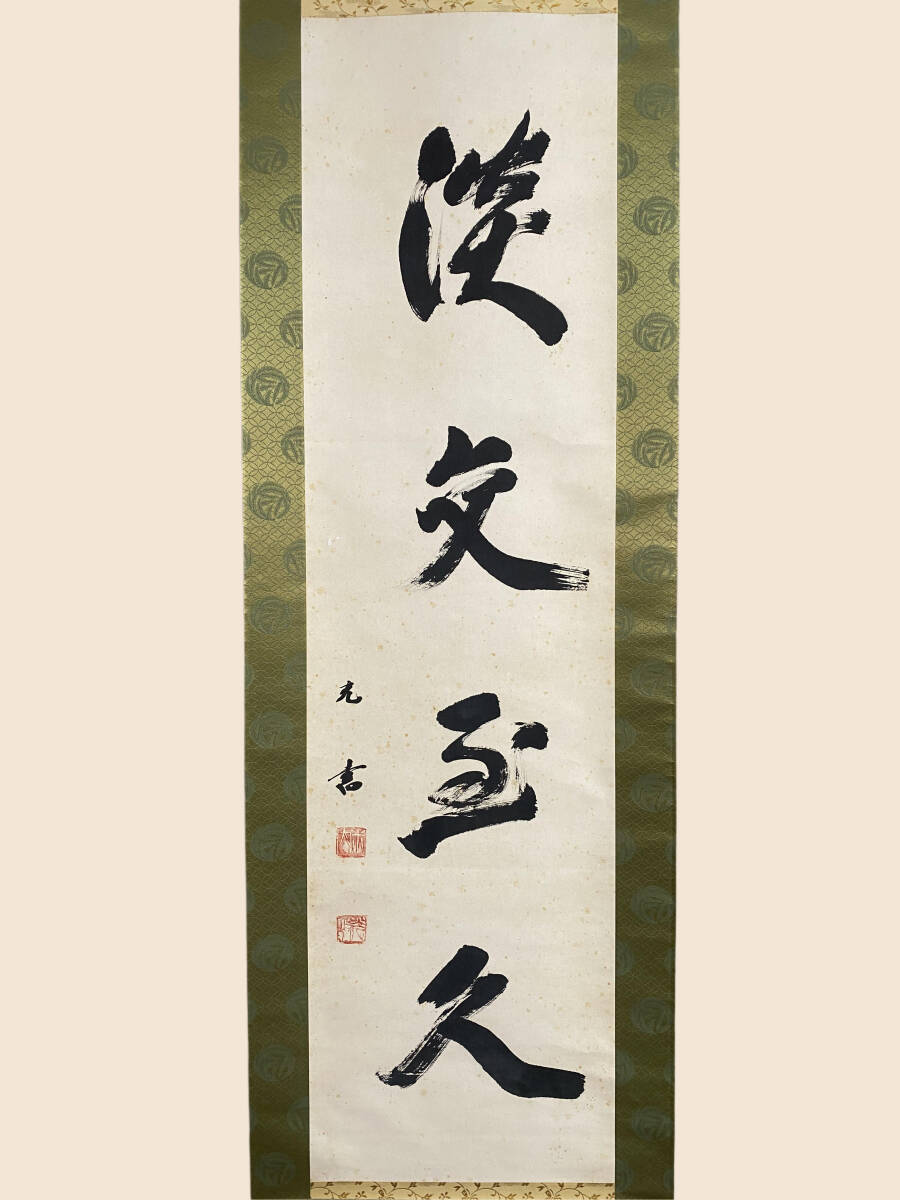 淡交至久
書